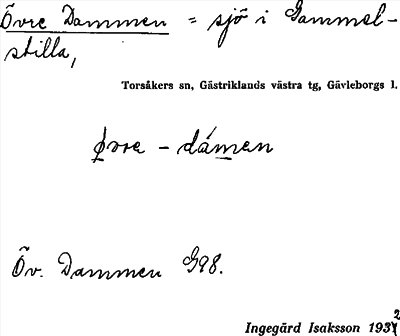 Övre Dammen = sjö i Gammel-
stilla,
Torsåkers sn, Gästriklands västra tg, Gävleborgs l.
øvre - dámen
Öv. Dammen G98.
Ingegärd Isaksson 1932